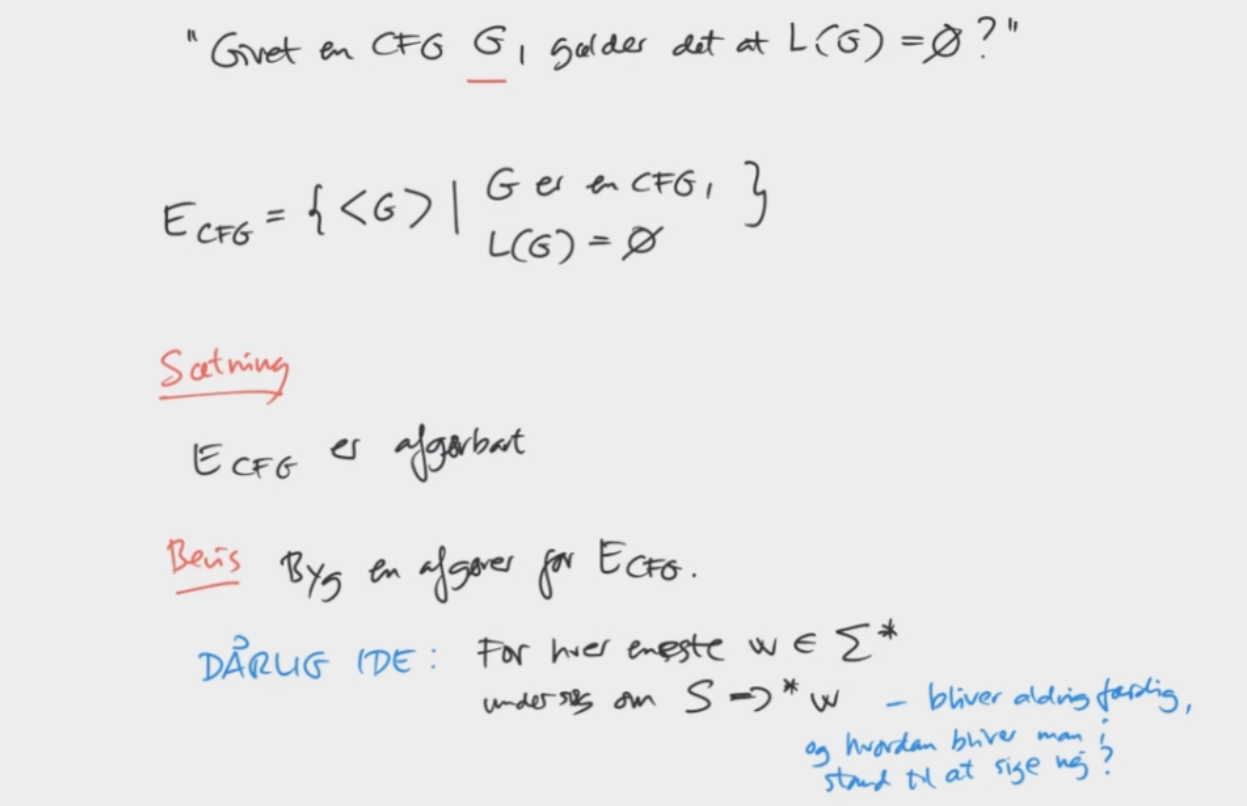 "Givet en CFG G, gælder det at L(G) = ∅?"
E_CFG = { <G> | G er en CFG, L(G) = ∅ }
Sætning
E_CFG er afgørbart
Bevis Byg en afgører for E_CFG.
DÅRLIG IDE: For hver eneste w ∈ Σ*
undersøg om S ⇒* w – bliver aldrig færdig,
og hvordan bliver man i
stand til at sige nej?